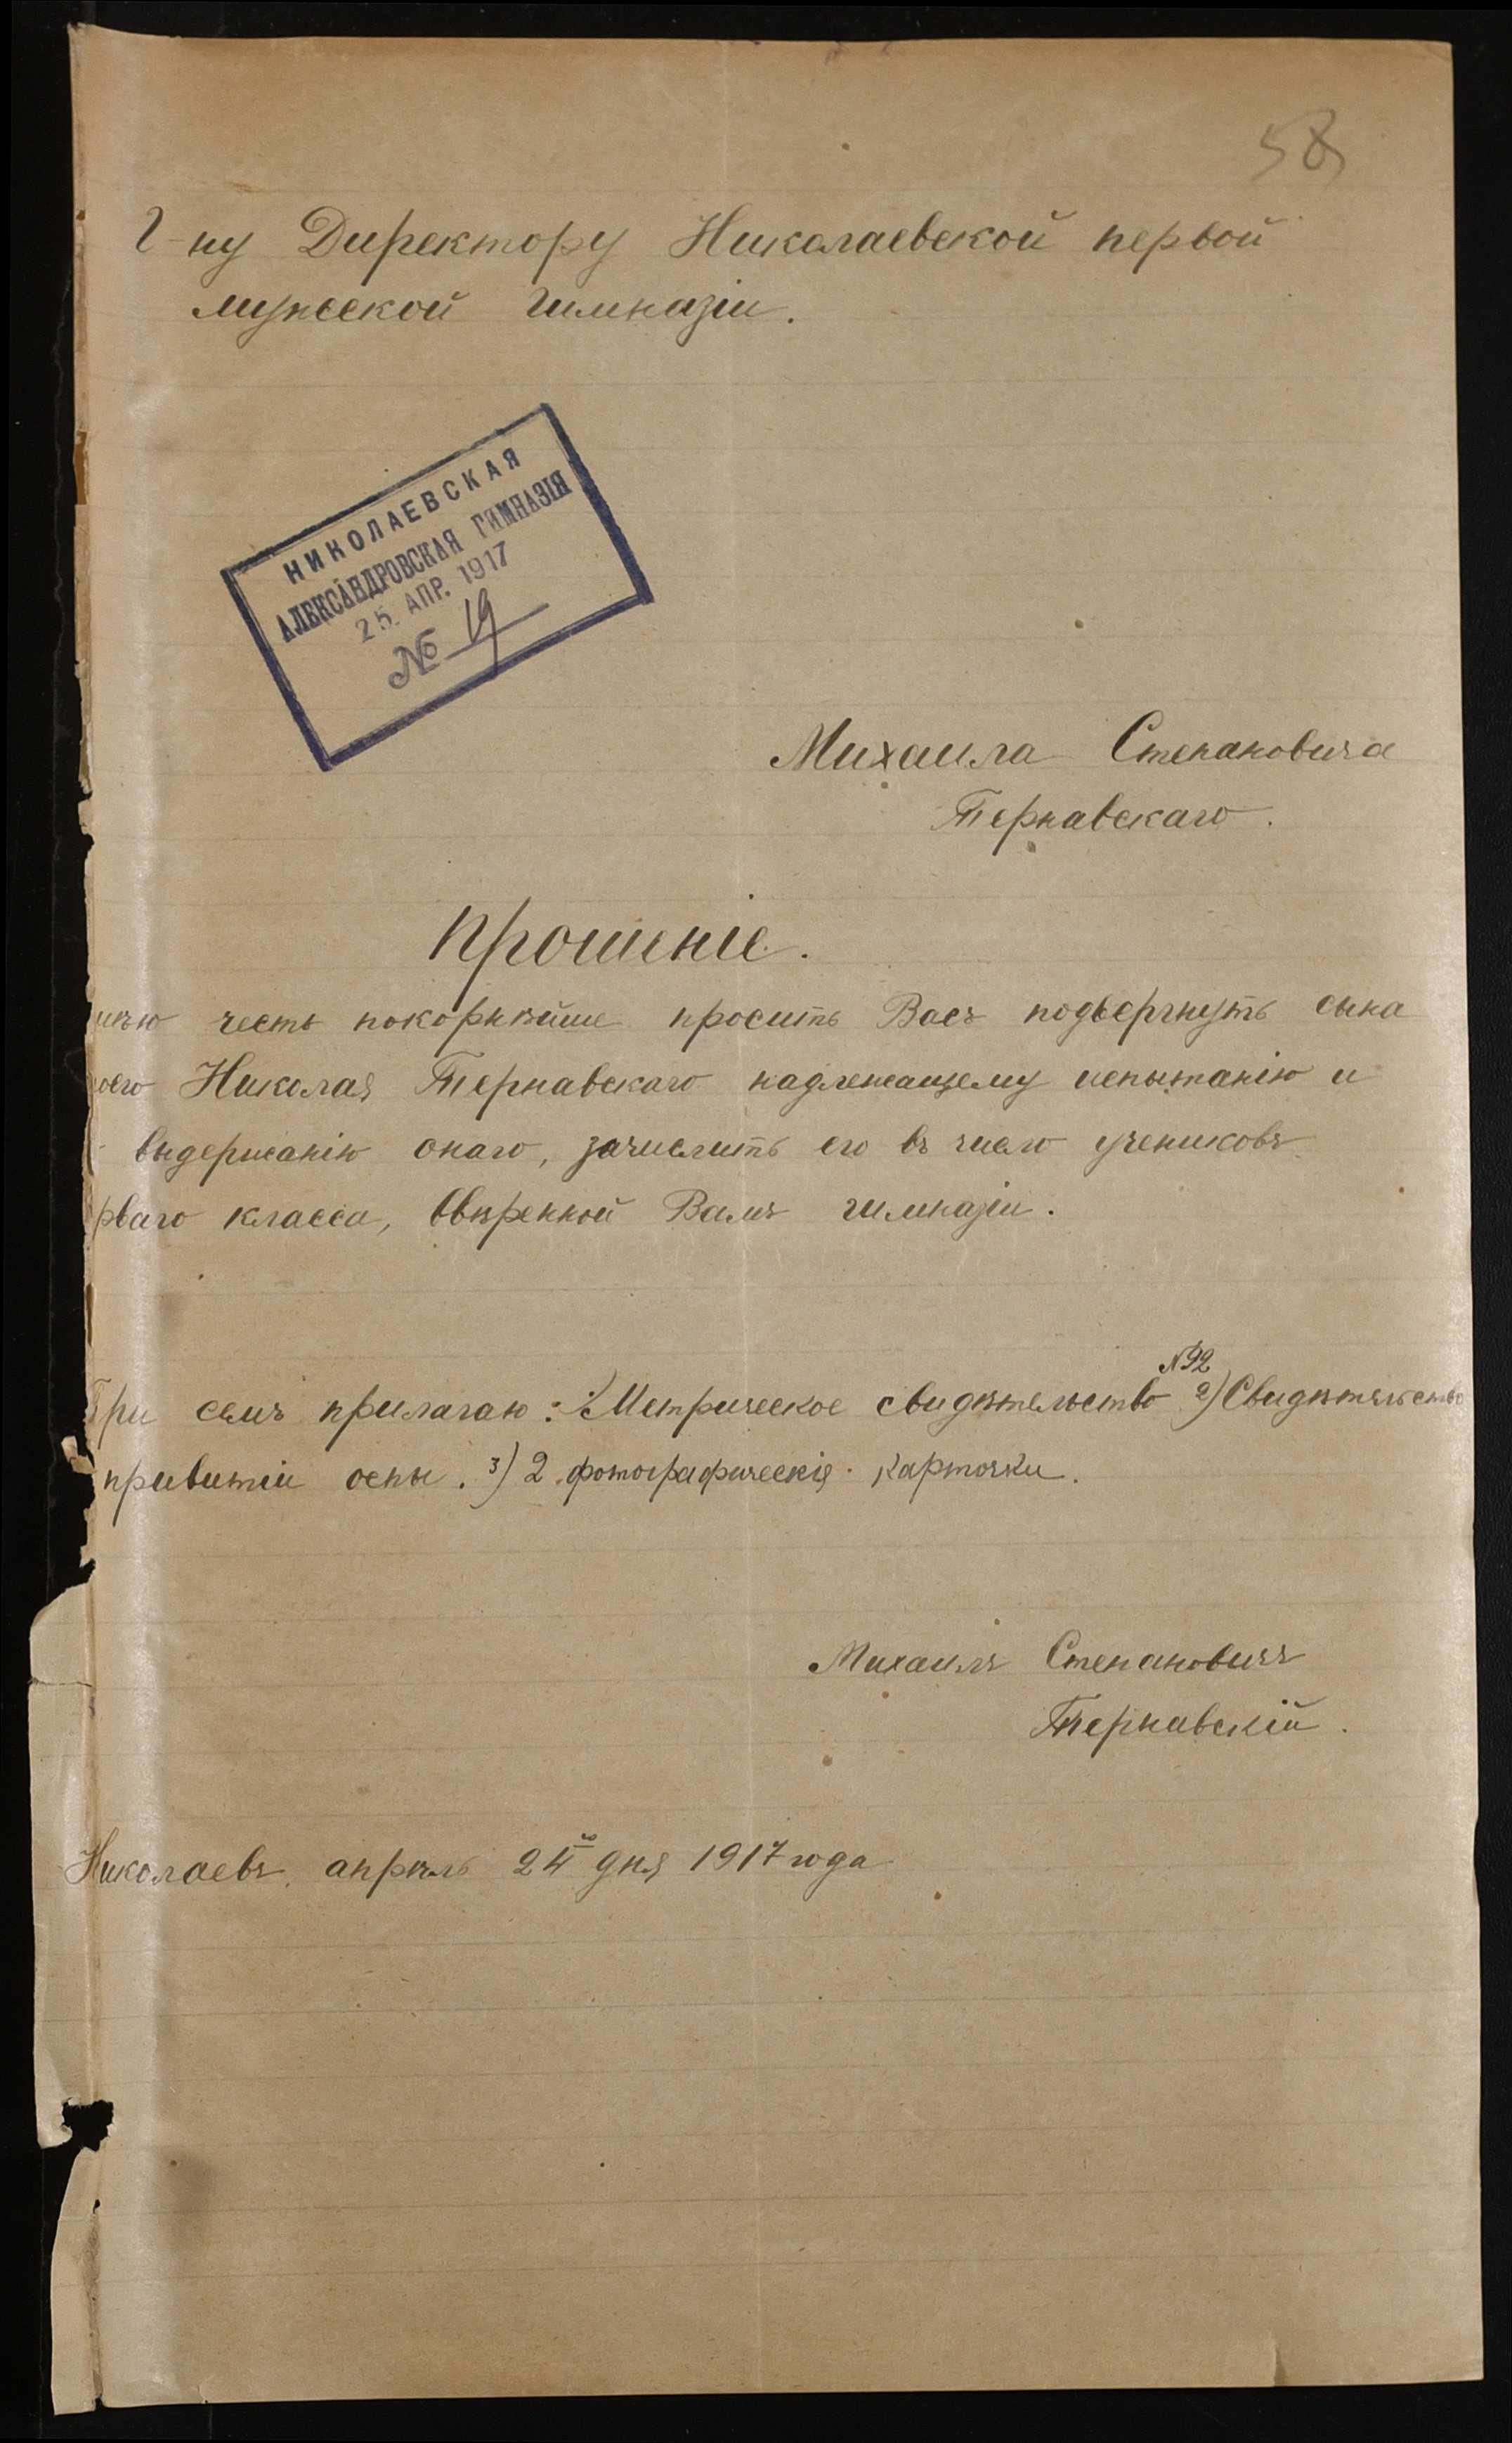 58
Г-ну Директору Николаевской первой
мужской Гимназіи.
НИКОЛАЕВСКАЯ
АЛЕКСАНДРОВСКАЯ ГИМНАЗІЯ
25. АПР. 1917
№ 19
Михаила Степановича
Тернавскаго.
Прошеніе.
мѣю честь покорнѣйше просить Васъ подвергнуть сына
оего Николая Тернавскаго надлежащему испытанію и
выдержанію онаго, зачислить его въ число учениковъ
рваго класса, ввѣренной Вамъ гимназіи.
№92
При семъ прилагаю: 1) Метрическое свидѣтельство 2) Свидѣтельство
привитіи оспы. 3) 2 фотографическія карточки.
Михаилъ Степановичъ
Тернавскій.
Николаевъ, апрѣль 24й дня 1917 года